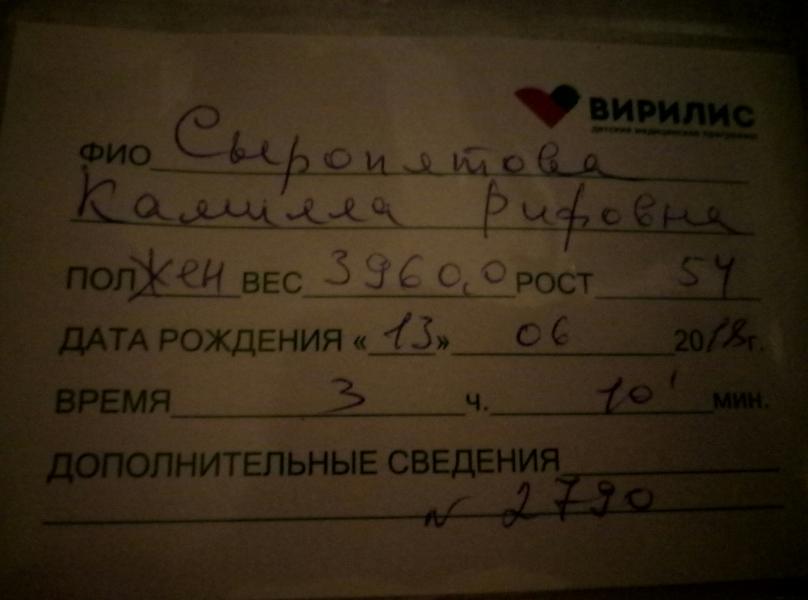 ВИРИЛИС
детские медицинские программы
ФИО Сыропятова
Камилла Рифовна
ПОЛ Жен ВЕС 3960,0 РОСТ 54
ДАТА РОЖДЕНИЯ «13» 06 2018г.
ВРЕМЯ 3 ч. 10' мин.
ДОПОЛНИТЕЛЬНЫЕ СВЕДЕНИЯ
N 2790